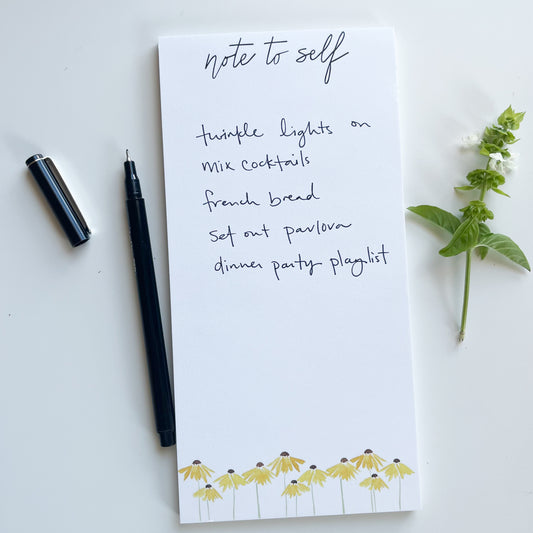 note to self
twinkle lights on
mix cocktails
french bread
set out pavlova
dinner party playlist